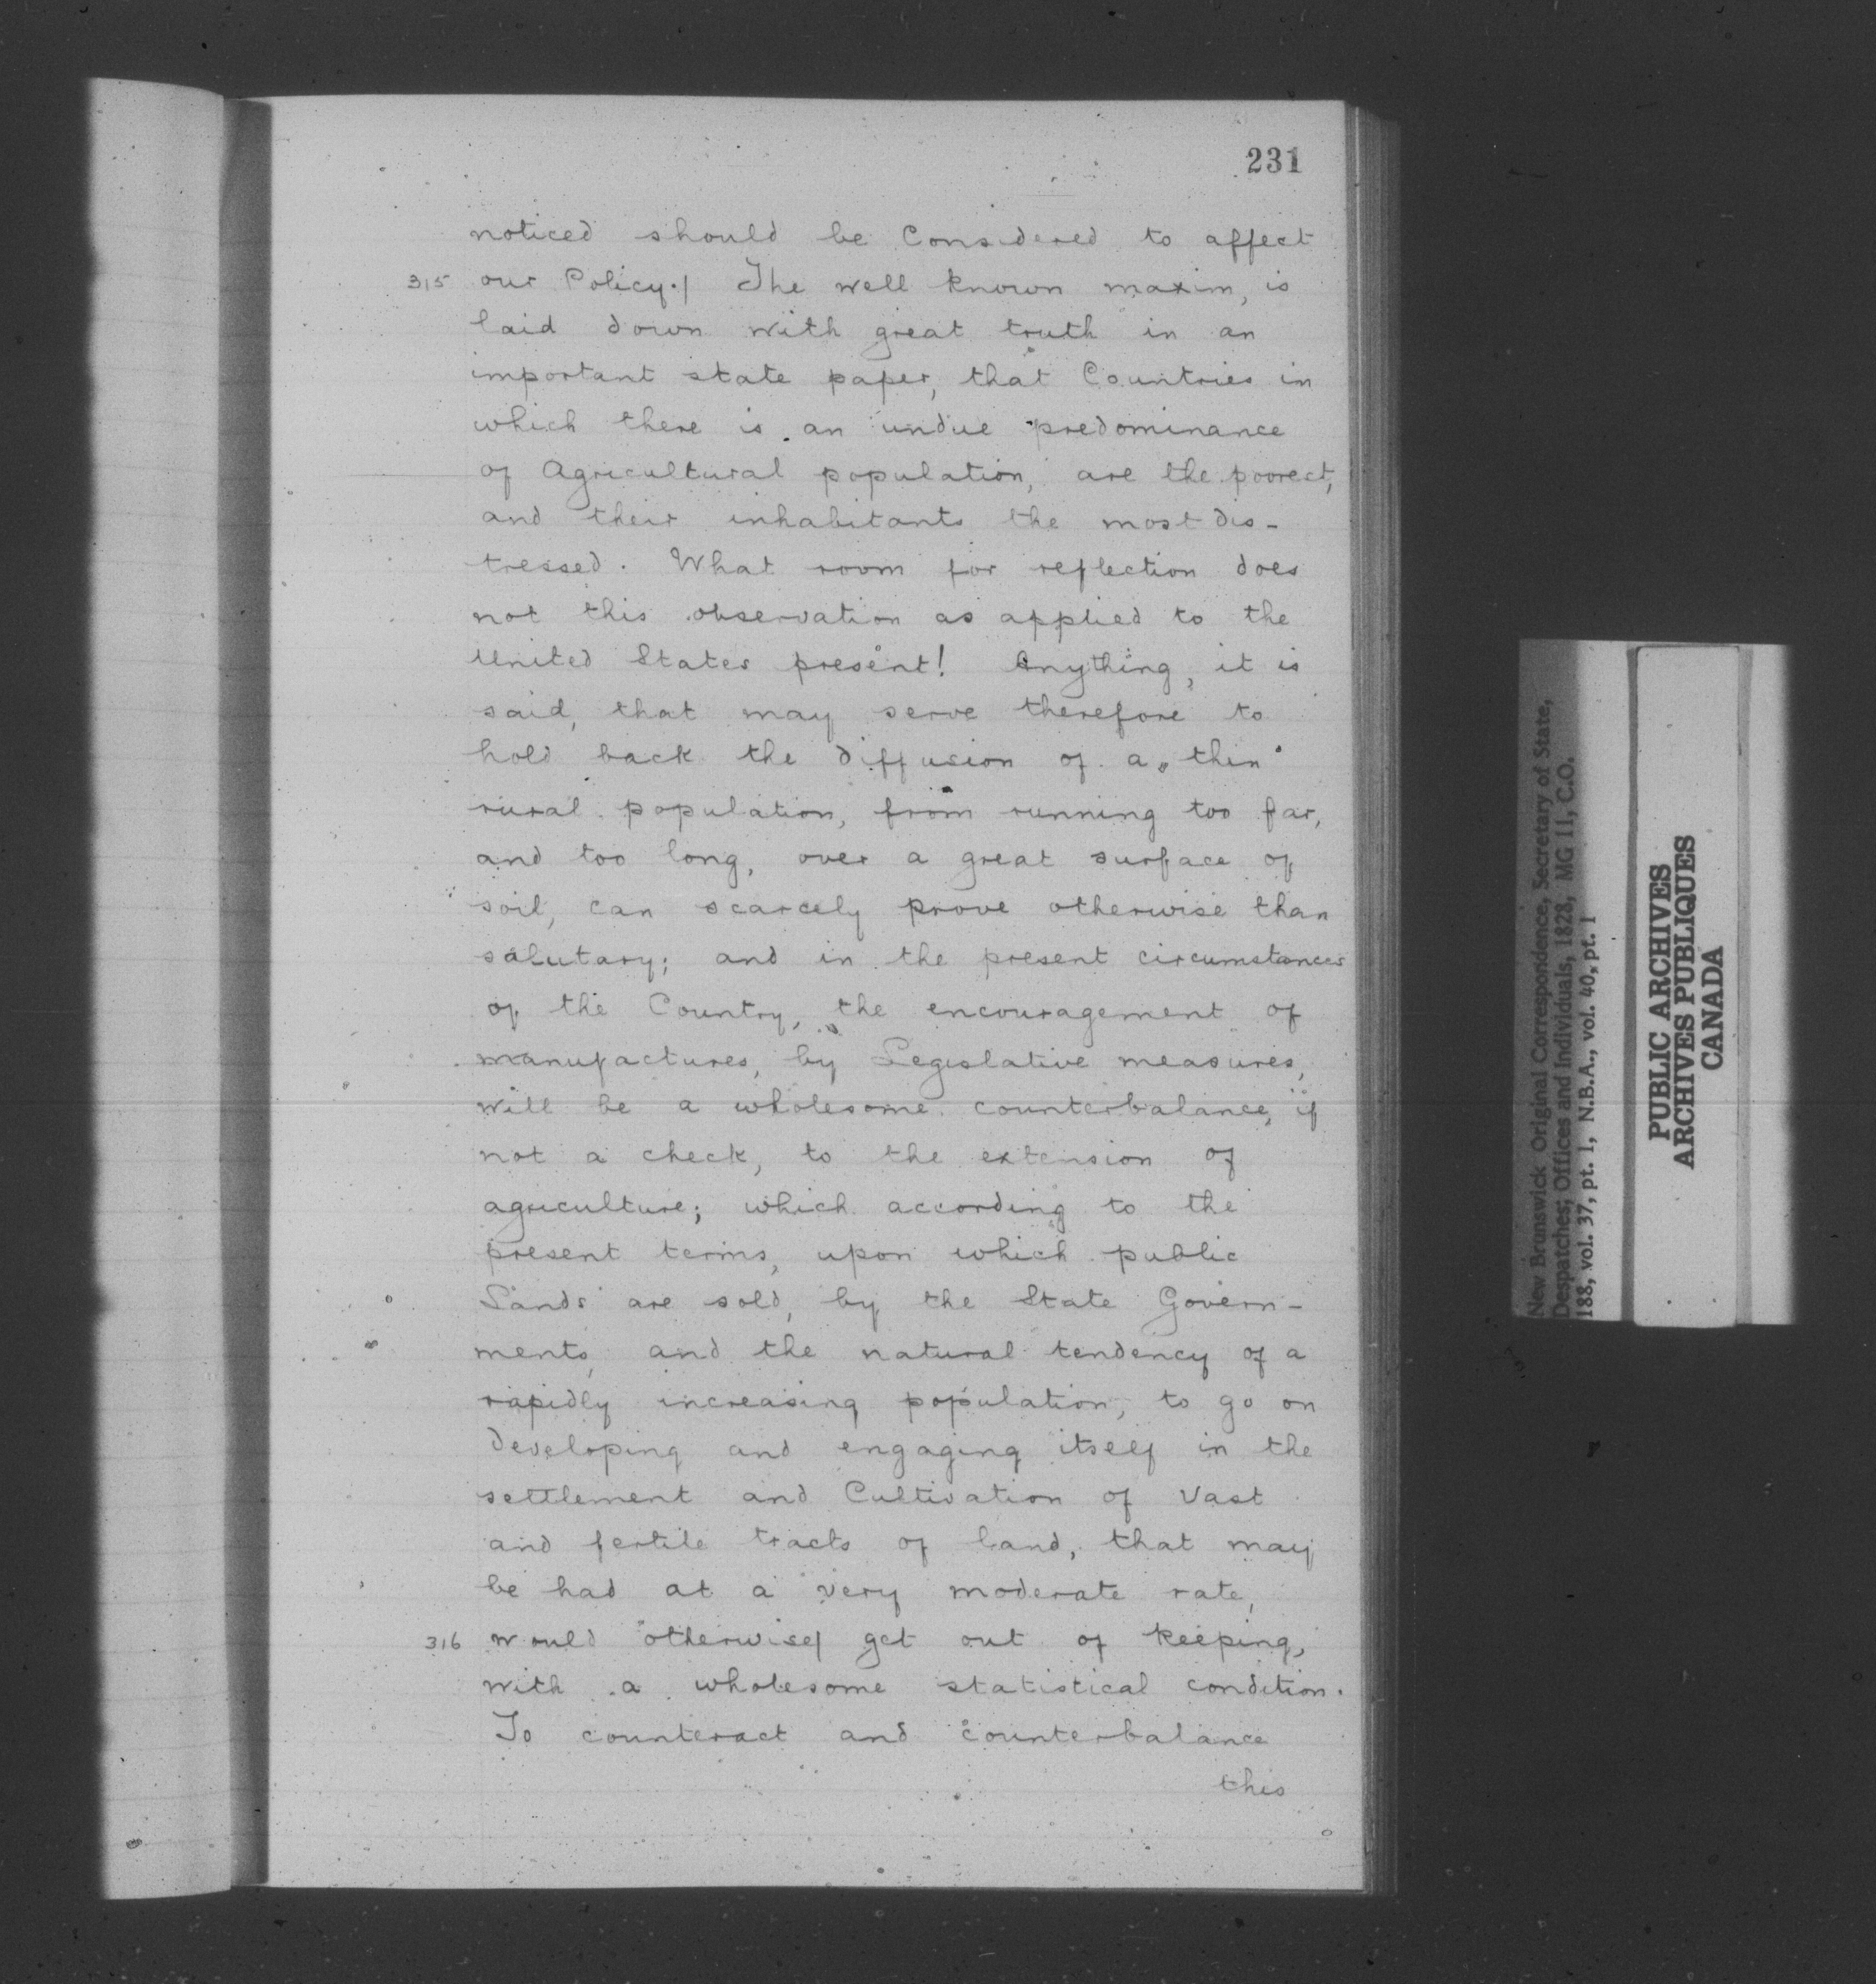 231
noticed should be Considered to affect
315 our Policy./ The well known maxim, is
laid down with great truth in an
important state paper, that Countries in
which there is an undue predominance
of Agricultural population, are the poorest,
and their inhabitants the most dis-
tressed. What room for reflection does
not this observation as applied to the
United States present! Anything, it is
said, that may serve therefore to
hold back the diffusion of a "thin"
rural population, from running too far,
and too long, over a great surface of
soil, can scarcely prove otherwise than
salutary; and in the present circumstances
of the Country, the encouragement of
manufactures, by Legislative measures,
will be a wholesome counterbalance, if
not a check, to the extension of
agriculture; which according to the
present terms, upon which public
Lands are sold, by the State Govern-
ments, and the natural tendency of a
rapidly increasing population, to go on
developing and engaging itself in the
settlement and Cultivation of Vast
and fertile tracts of land, that may
be had at a very moderate rate,
316 would otherwise/ get out of keeping,
with a wholesome statistical condition.
To counteract and counterbalance
this
New Brunswick Original Correspondence, Secretary of State,
Despatches; Offices and Individuals, 1828, MG 11, C.O.
188, vol. 37, pt. 1, N.B.A., vol. 40, pt. 1
PUBLIC ARCHIVES
ARCHIVES PUBLIQUES
CANADA